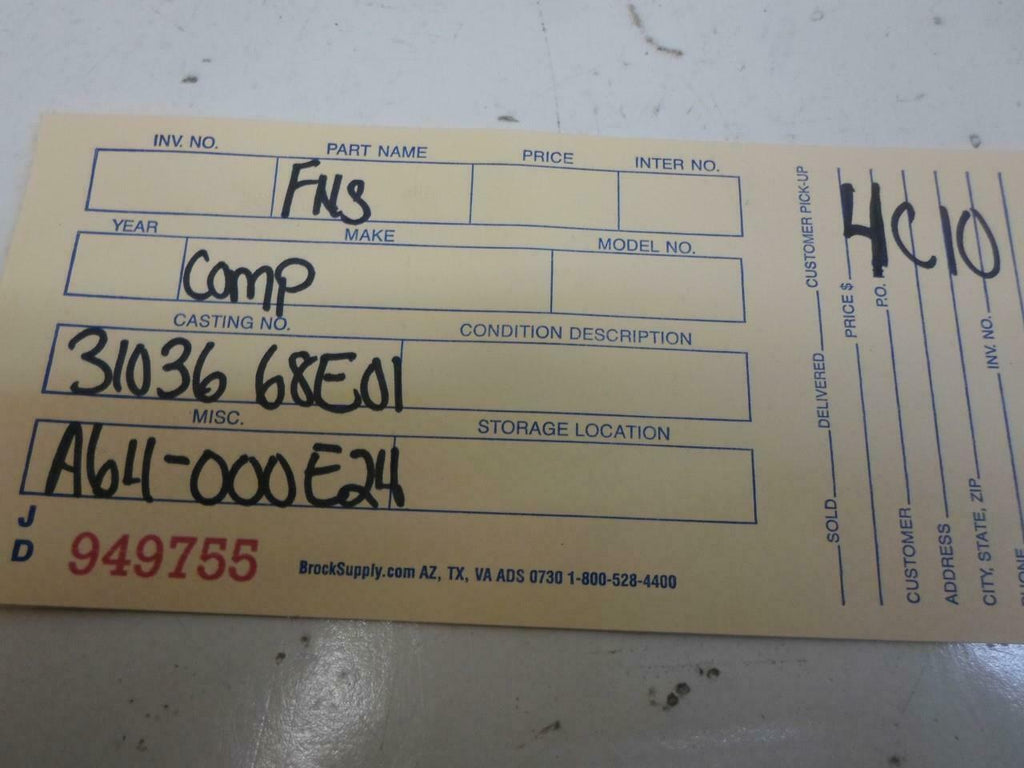 INV. NO. PART NAME PRICE INTER NO.
FNS
YEAR MAKE MODEL NO.
Comp
CASTING NO. CONDITION DESCRIPTION
31036 68E01
MISC. STORAGE LOCATION
A64-000 E24
J
D
949755
BrockSupply.com AZ, TX, VA ADS 0730 1-800-528-4400
SOLD DELIVERED CUSTOMER PICK-UP
PRICE $
P.O.
CUSTOMER
ADDRESS INV. NO.
CITY, STATE, ZIP
PHONE
4C10